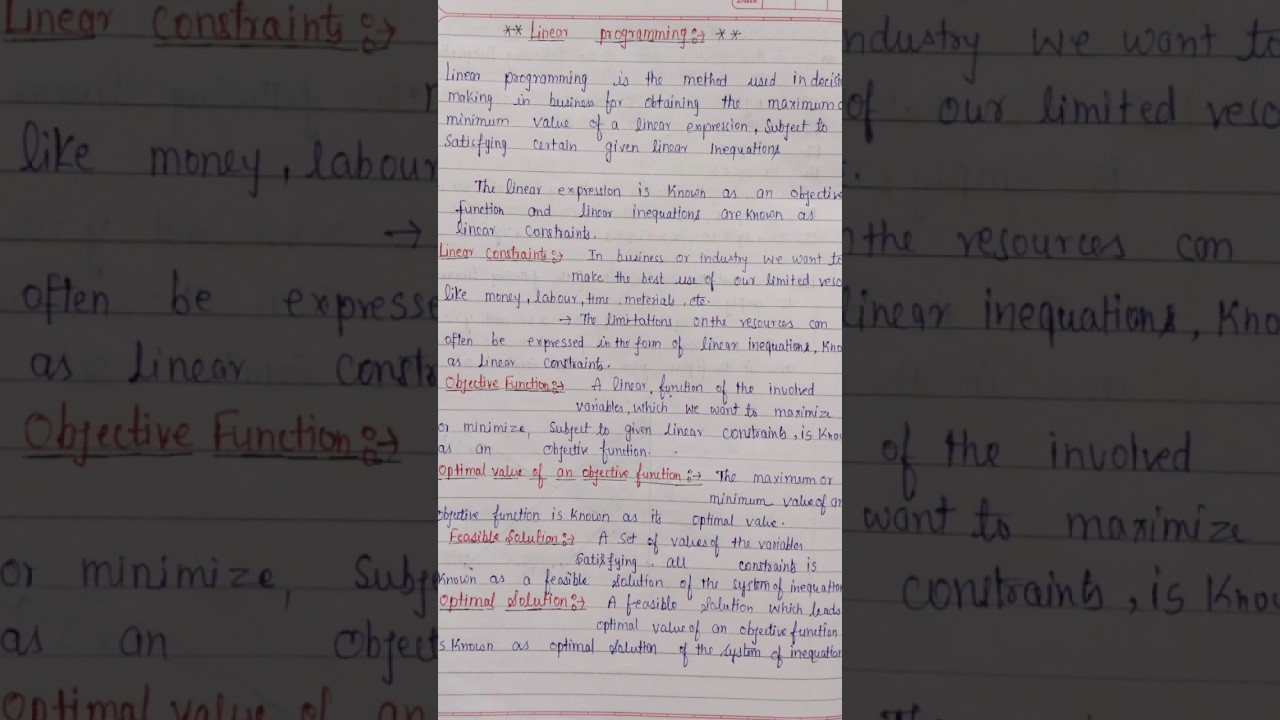 Date
** Linear programming :→ **
Linear programming is the method used in decisi
making in business for obtaining the maximum o
minimum value of a linear expression, Subject to
Satisfying certain given linear Inequations
The linear expression is Known as an objectiv
function and linear inequations are Known as
linear Constraints.
Linear Constraints :→ In business or industry we want to
make the best use of our limited reso
like money, labour, time, meterials, etc.
→ The limitations on the resources can
often be expressed in the form of linear inequations, Kno
as Linear constraints.
Objective Function :→ A linear function of the involved
variables, which we want to maximize
or minimize, Subject to given linear constraints, is Know
as an objective function.
Optimal value of an objective function :→ The maximum or
minimum value of an
objective function is Known as its optimal value.
Feasible Solution :→ A set of values of the variables
Satisfying all constraints is
Known as a feasible solution of the system of inequation
Optimal Solution :→ A feasible solution which leads
optimal value of an objective function
is Known as optimal solution of the system of inequation
Linear Constraints :→ ndustry we want to
of our limited reso
like money, labour
→ the resources can
often be expresse linear inequations, Kno
as linear constra
Objective Function :→ of the involved
want to maximize
or minimize, Subj constraints, is Know
as an object
Optimal value of an